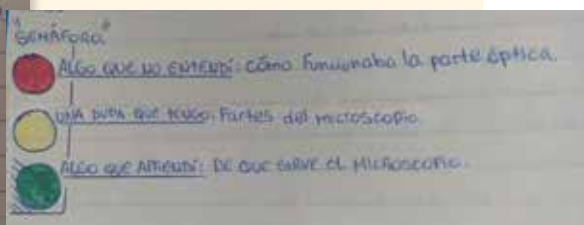 "SEMÁFORO"
ALGO QUE NO ENTENDÍ: Cómo funcionaba la parte óptica.
UNA DUDA QUE TENGO: Partes del microscopio.
ALGO QUE APRENDÍ: DE QUE SIRVE EL MICROSCOPIO.